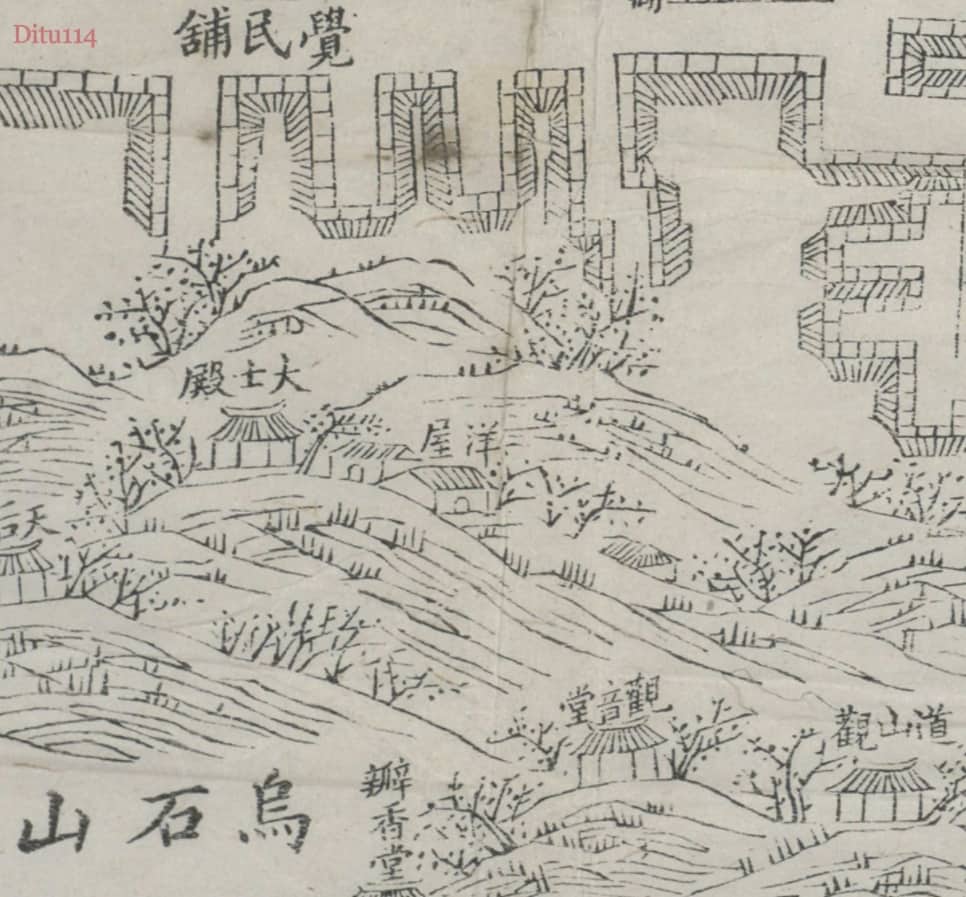 Ditu114
覺民舖
大士殿
洋屋
天后
觀音堂
道山觀
瓣香堂
烏石山